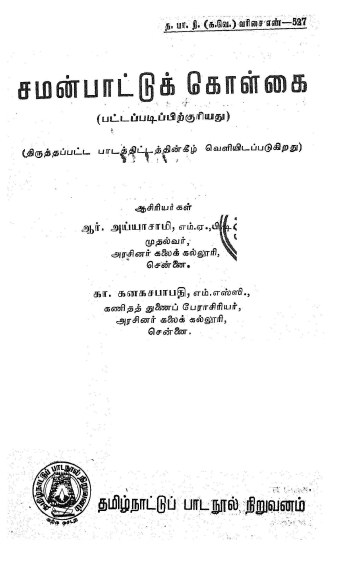 த. பா. நி. (க.வெ.) வரிசை எண்—527
சமன்பாட்டுக் கொள்கை
(பட்டப்படிப்பிற்குரியது)
(திருத்தப்பட்ட பாடத்திட்டத்தின்கீழ் வெளியிடப்படுகிறது)
ஆசிரியர்கள்
ஆர். அய்யாசாமி, எம்.ஏ.,
முதல்வர்,
அரசினர் கலைக் கல்லூரி,
சென்னை.
கா. கனகசபாபதி, எம்.எஸ்ஸி.,
கணிதத் துணைப் பேராசிரியர்,
அரசினர் கலைக் கல்லூரி,
சென்னை.
தமிழ்நாட்டுப் பாடநூல் நிறுவனம்
தமிழ்நாட்டுப் பாடநூல் நிறுவனம்